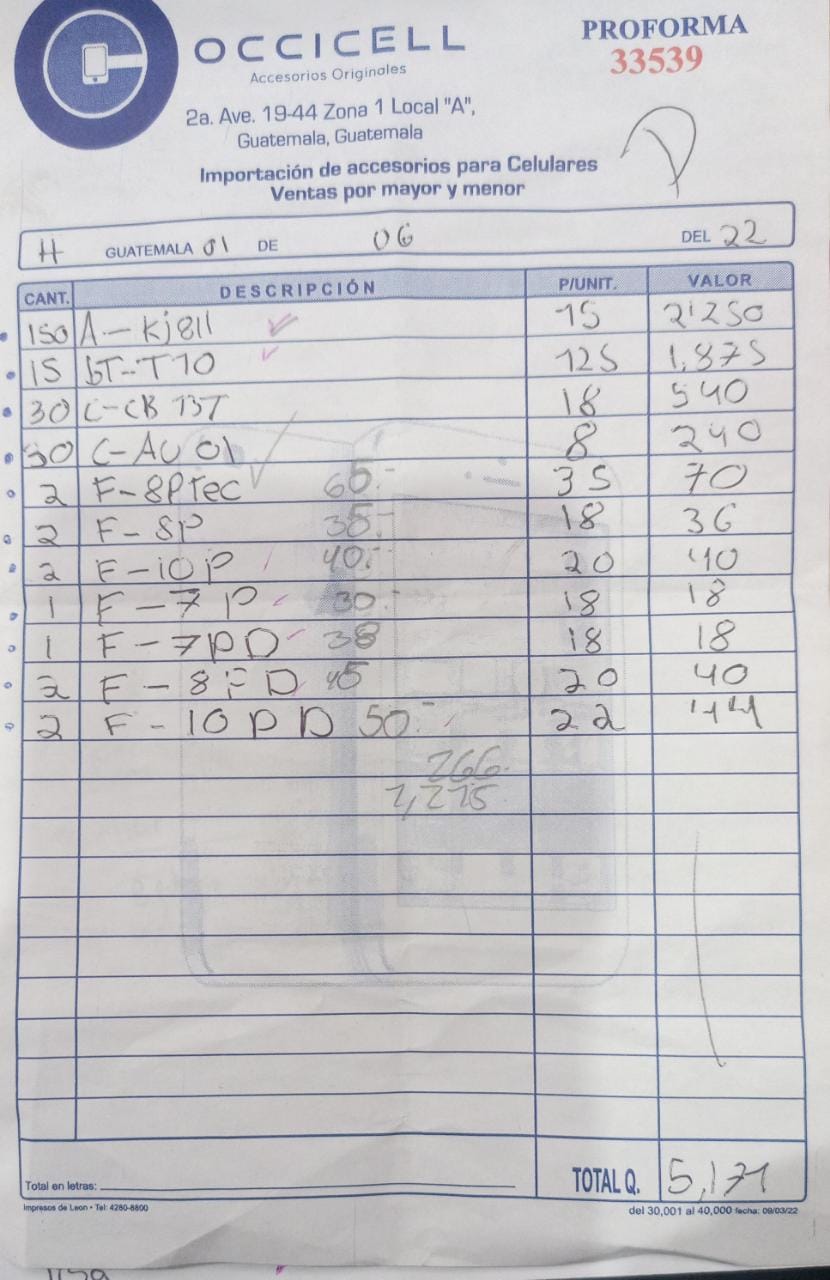 OCCICELL
Accesorios Originales
PROFORMA
33539
2a. Ave. 19-44 Zona 1 Local "A",
Guatemala, Guatemala
Importación de accesorios para Celulares
Ventas por mayor y menor
H GUATEMALA 01 DE 06 DEL 22
CANT. DESCRIPCIÓN P/UNIT. VALOR
150 A-Kj811 15 2'250
15 bT-T10 125 1,875
30 C-CB13T 18 540
30 C-AU01 8 240
2 F-8PTec 60.- 35 70
2 F-8P 35.- 18 36
2 F-10P 40.- 20 40
1 F-7P 30.- 18 18
1 F-7PD 38 18 18
2 F-8PD 45 20 40
2 F-10PD 50.- 22 44
266.
TOTAL Q. 5,171
Total en letras:
Impresos de Leon • Tel: 4260-8800 del 30,001 al 40,000 fecha: 09/03/22